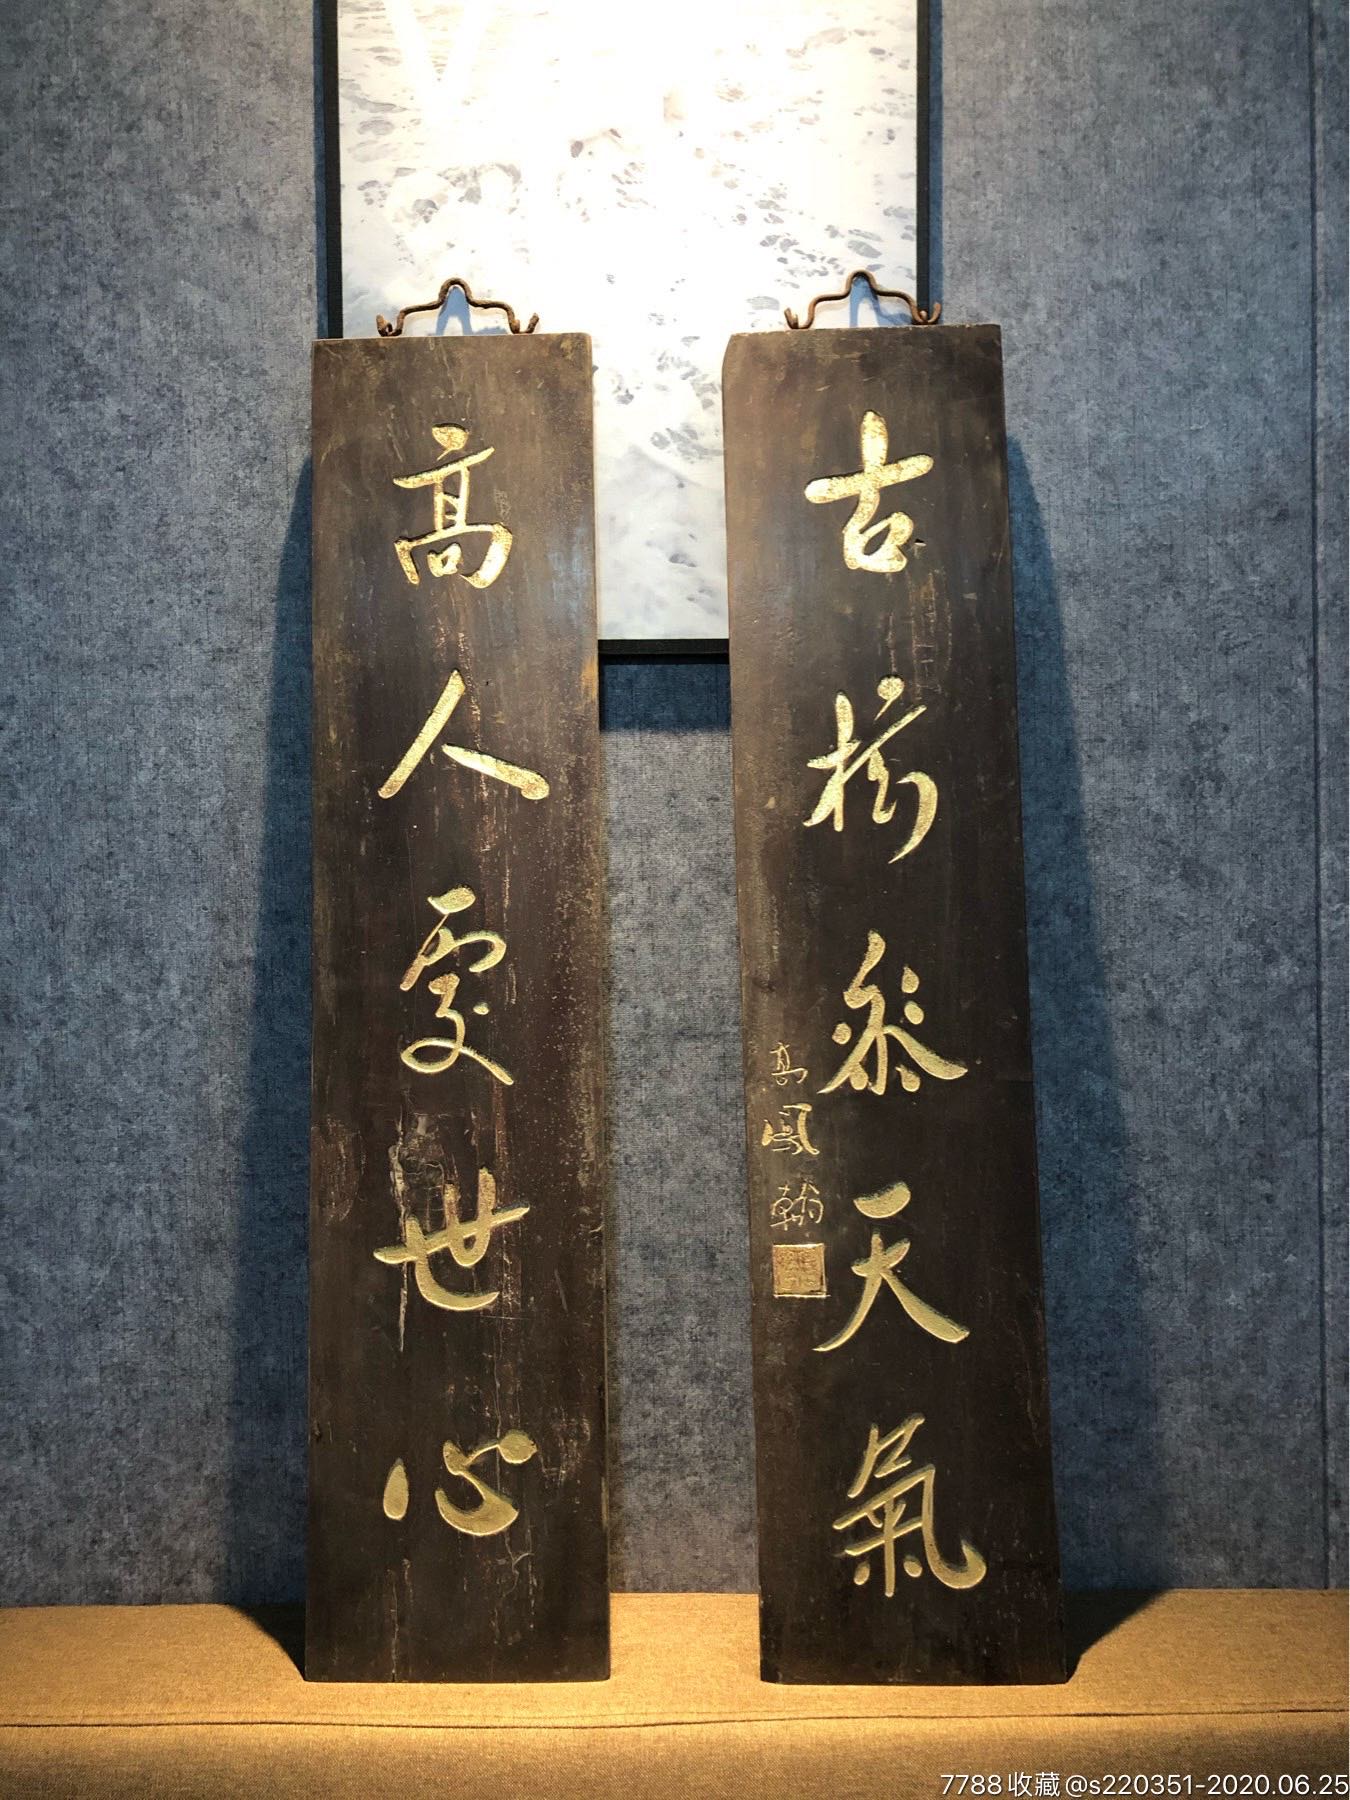 古樹參天氣
高鳳翰
高人處世心
7788收藏@s220351-2020.06.25